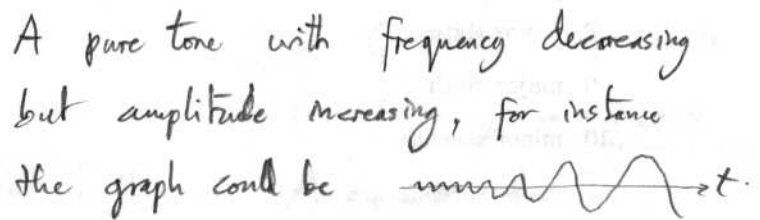 A pure tone with frequency decreasing
but amplitude increasing, for instance
the graph could be t.